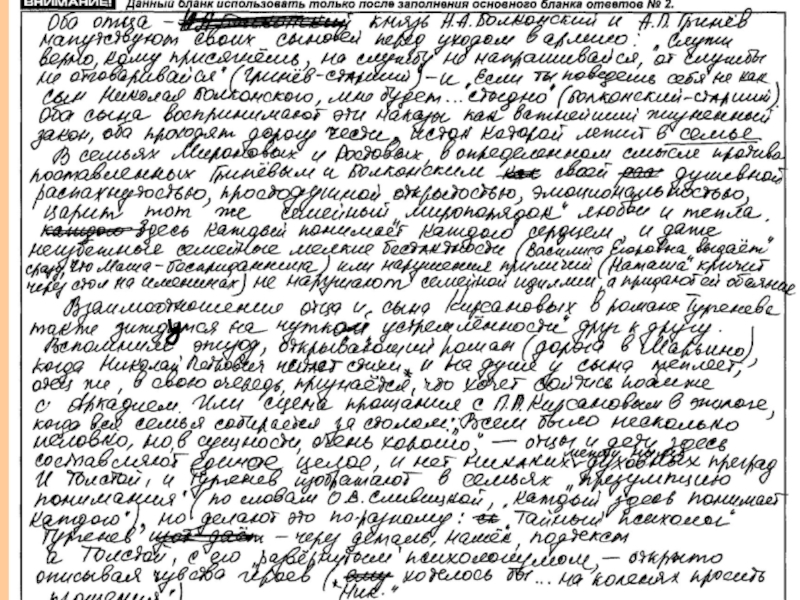 ВНИМАНИЕ! Данный бланк использовать только после заполнения основного бланка ответов № 2.
Оба отца – князь Н.А. Болконский и А.П. Гринёв
напутствуют своих сыновей перед уходом в армию: "Служи
верно, кому присягнёшь, на службу не напрашивайся, от службы
не отговаривайся" (Гринёв-старший) – и "Если ты поведёшь себя не как
сын Николая Болконского, мне будет... стыдно" (Болконский-старший).
Оба сына воспринимают эти наказы как важнейший жизненный
закон, оба проходят дорогу чести, исток которой лежит в семье
В семьях Мироновых и Ростовых, в определенном смысле противо
поставленных Гринёвым и Болконским своей душевной
распахнутостью, простодушной открытостью, эмоциональностью,
царит тот же "семейный миропорядок" любви и тепла.
Здесь "каждый понимает каждого" сердцем и даже
неизбежные семейные мелкие бестактности (Василиса Егоровна "выдаёт"
сразу, что Маша – бесприданница) или нарушения приличий (Наташа "кричит
через стол на именинах) не нарушают семейной идиллии, а придают ей обаяние
Взаимоотношения отца и сына Кирсановых в романе Тургенева
также зиждутся на чуткой "устремлённости" друг к другу.
Вспомним эпизод, открывающий роман (дорога в Марьино),
когда Николай Петрович читает стихи, и на душе и сына теплеет,
отец же, в свою очередь, признаётся, что хочет сойтись поближе
с Аркадием. Или сцена прощания с П.П. Кирсановым в эпилоге,
когда вся семья собирается за столом: "Всем было несколько
неловко, но, в сущности, очень хорошо" – отцы и дети здесь
составляют единое целое, и нет никаких между ними духовных преград
И Толстой, и Тургенев изображают в семьях "презумпцию
понимания" (по словам О.В. Сливицкой, "каждый здесь понимает
каждого"), но делают это по-разному: "Тайный психолог"
Тургенев – через деталь, намёк, подтекст
а Толстой, с его "развёрнутым" психологизмом, – открыто
описывая чувства героев ( хотелось бы... на коленях просить
прощения")
"Ник."